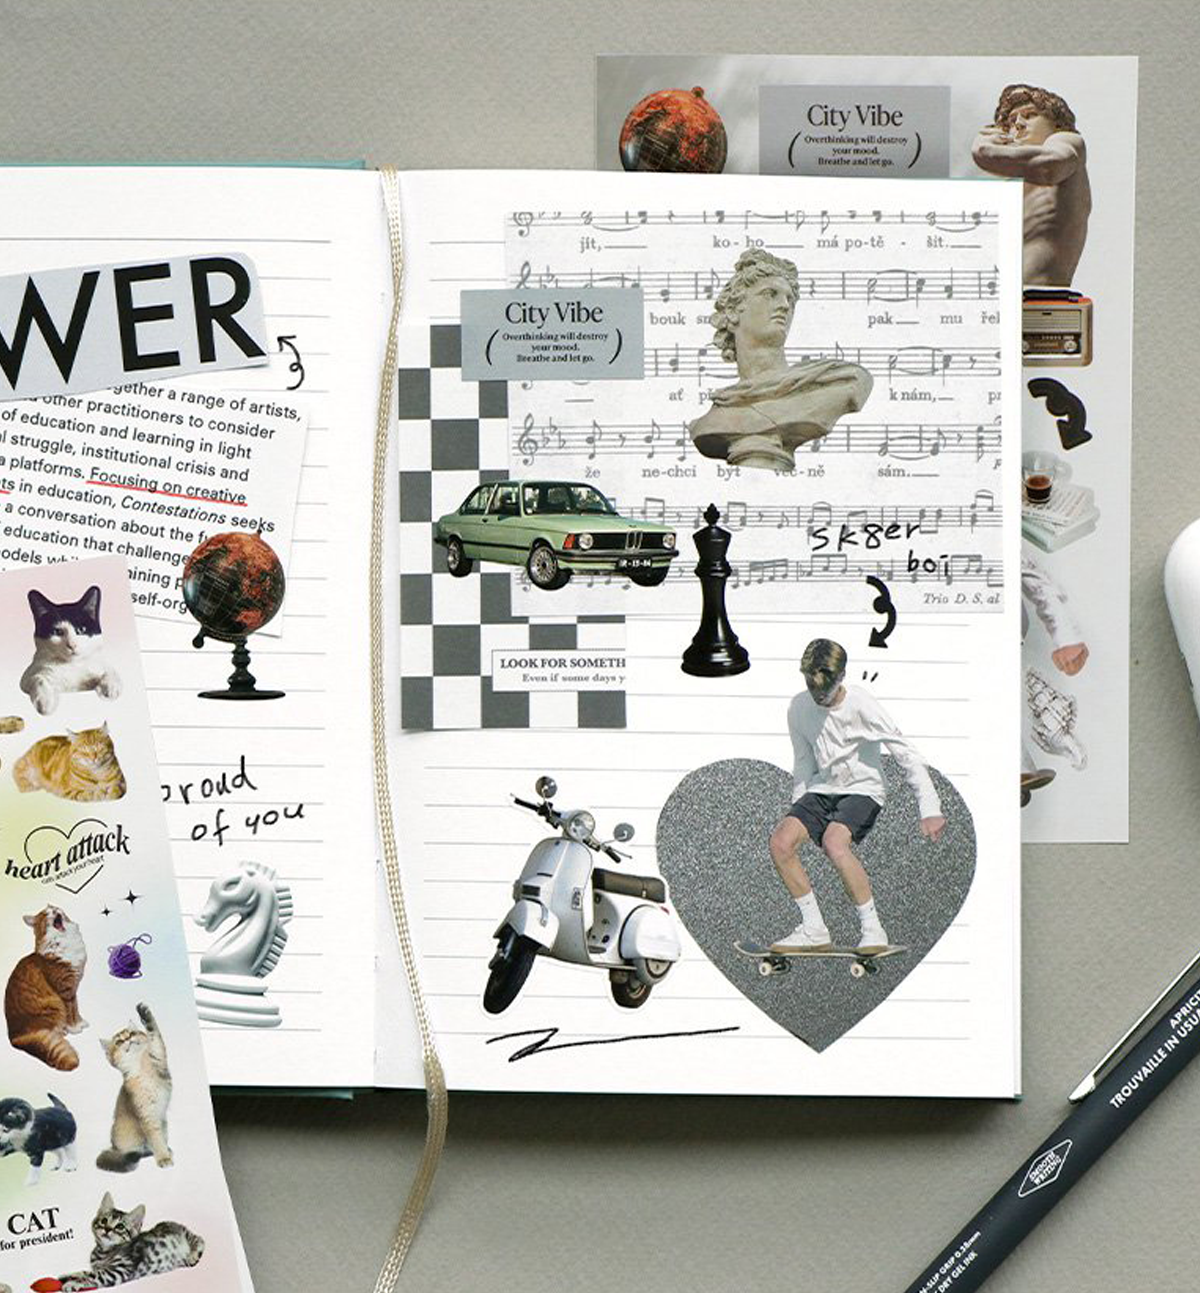 City Vibe
(Overthinking will destroy
your mood.
Breathe and let go.)
WER
gether a range of artists,
other practitioners to consider
of education and learning in light
struggle, institutional crisis and
platforms. Focusing on creative
in education, Contestations seeks
a conversation about the
education that challenge
self-org
proud
of you
heart attack
CAT
for president!
jit, ko - ho má po-tě - šit.
City Vibe
(Overthinking will destroy
your mood.
Breathe and let go.)
bouk pak mu
ať k nám,
že ne-chci být věc-ně sám.
sk8er
boi
Trio D. S. al
R-15-84
LOOK FOR SOMETH
Even if some days y
APRICO
TROUVAILLE IN USU
SMOOTH
WRITING
-SLIP GRIP 0.38mm
DRY GEL INK